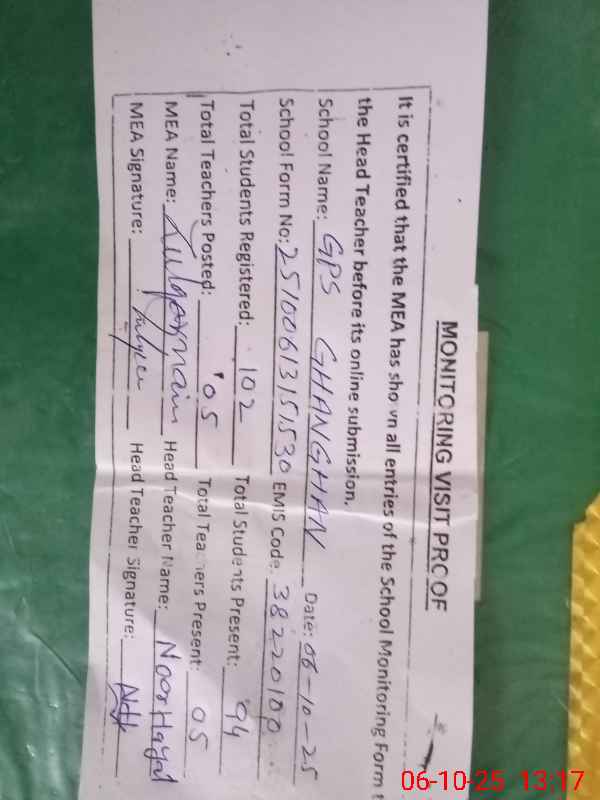 MONITORING VISIT PROOF
It is certified that the MEA has shown all entries of the School Monitoring Form t
the Head Teacher before its online submission.
School Name: GPS GHANGHAN Date: 06-10-25
School Form No: 25100613151530 EMIS Code: 38220100
Total Students Registered: 102 Total Students Present: 94
Total Teachers Posted: 05 Total Teachers Present: 05
MEA Name: Zulqarnain Head Teacher Name: Noor Hayat
MEA Signature: Head Teacher Signature:
06-10-25 13:17